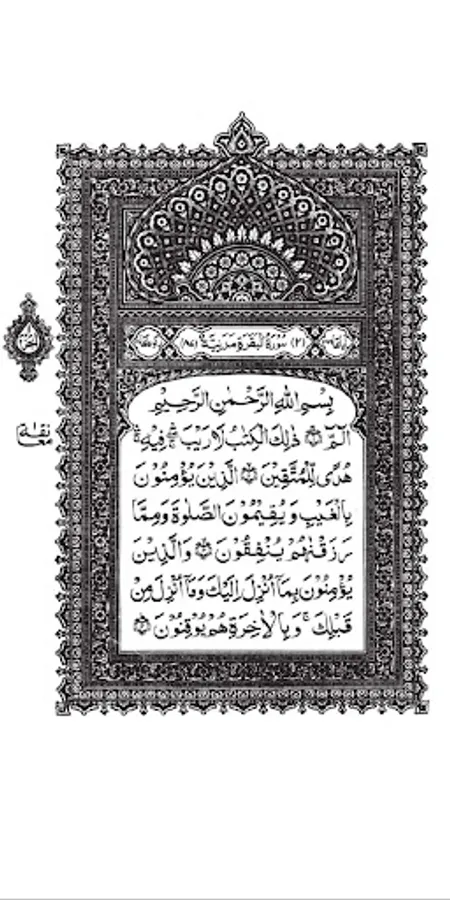 (۲) سُوْرَةُ الْبَقَرَةِ مَدَنِيَّةٌ (۸۷)
بِسْمِ اللّٰهِ الرَّحْمٰنِ الرَّحِيْمِ
الٓمّٓ ذٰلِكَ الْكِتٰبُ لَا رَيْبَ فِيْهِ
هُدًى لِّلْمُتَّقِيْنَ الَّذِيْنَ يُؤْمِنُوْنَ
بِالْغَيْبِ وَيُقِيْمُوْنَ الصَّلٰوةَ وَمِمَّا
رَزَقْنٰهُمْ يُنْفِقُوْنَ وَالَّذِيْنَ
يُؤْمِنُوْنَ بِمَآ اُنْزِلَ اِلَيْكَ وَمَآ اُنْزِلَ مِنْ
قَبْلِكَ وَبِالْاٰخِرَةِ هُمْ يُوْقِنُوْنَ